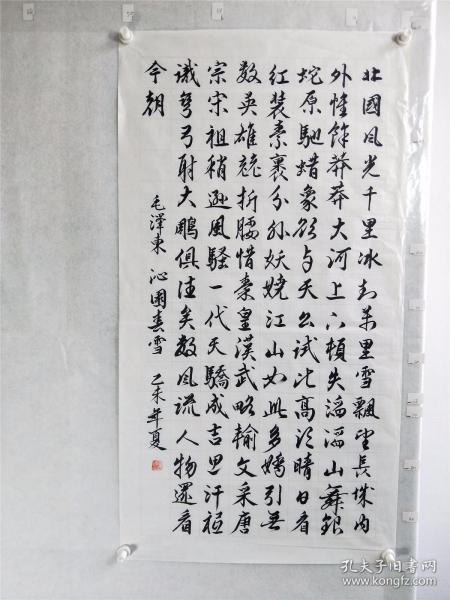 北國风光千里冰封萬里雪飄望長城内
外惟餘莽莽大河上下頓失滔滔山舞銀
蛇原馳蜡象欲与天公试比高须晴日看
红装素裹分外妖娆江山如此多嬌引无
数英雄競折腰惜秦皇漢武略輸文采唐
宗宋祖稍逊風騷一代天驕成吉思汗祗
識弯弓射大鵬俱往矣数风流人物還看
今朝
毛澤東 沁園春雪 乙未年夏
孔夫子旧书网
www.kongfz.com